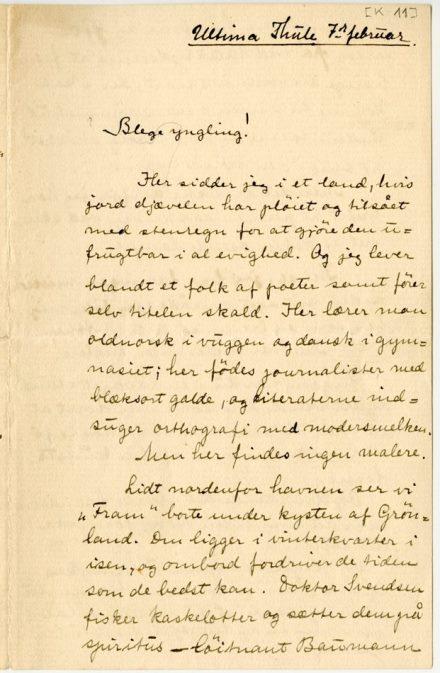 [K-11]
Ultima Thule 7<sup>de</sup> februar.
Blege yngling!
Her sidder jeg i et land, hvis
jord djævelen har pløiet og tilsået
med stenregn for at gjöre den u=
frugtbar i al evighed. Og jeg lever
blandt et folk af poeter samt förer
selv titelen skald. Her lærer man
oldnorsk i vuggen og dansk i gym=
nasiet; her födes journalister med
blæksort galde, og literaterne ind=
suger orthografi med modersmelken.
Men her findes ingen malere.
Lidt nordenfor havnen ser vi
„Fram“ borte under kysten af Grön=
land. Den ligger i vinterkvarter i
isen, og ombord fordriver de tiden
som de bedst kan. Doktor Svendsen
fisker kaskelotter og sætter dem på
spiritus — Löitnant Baumann